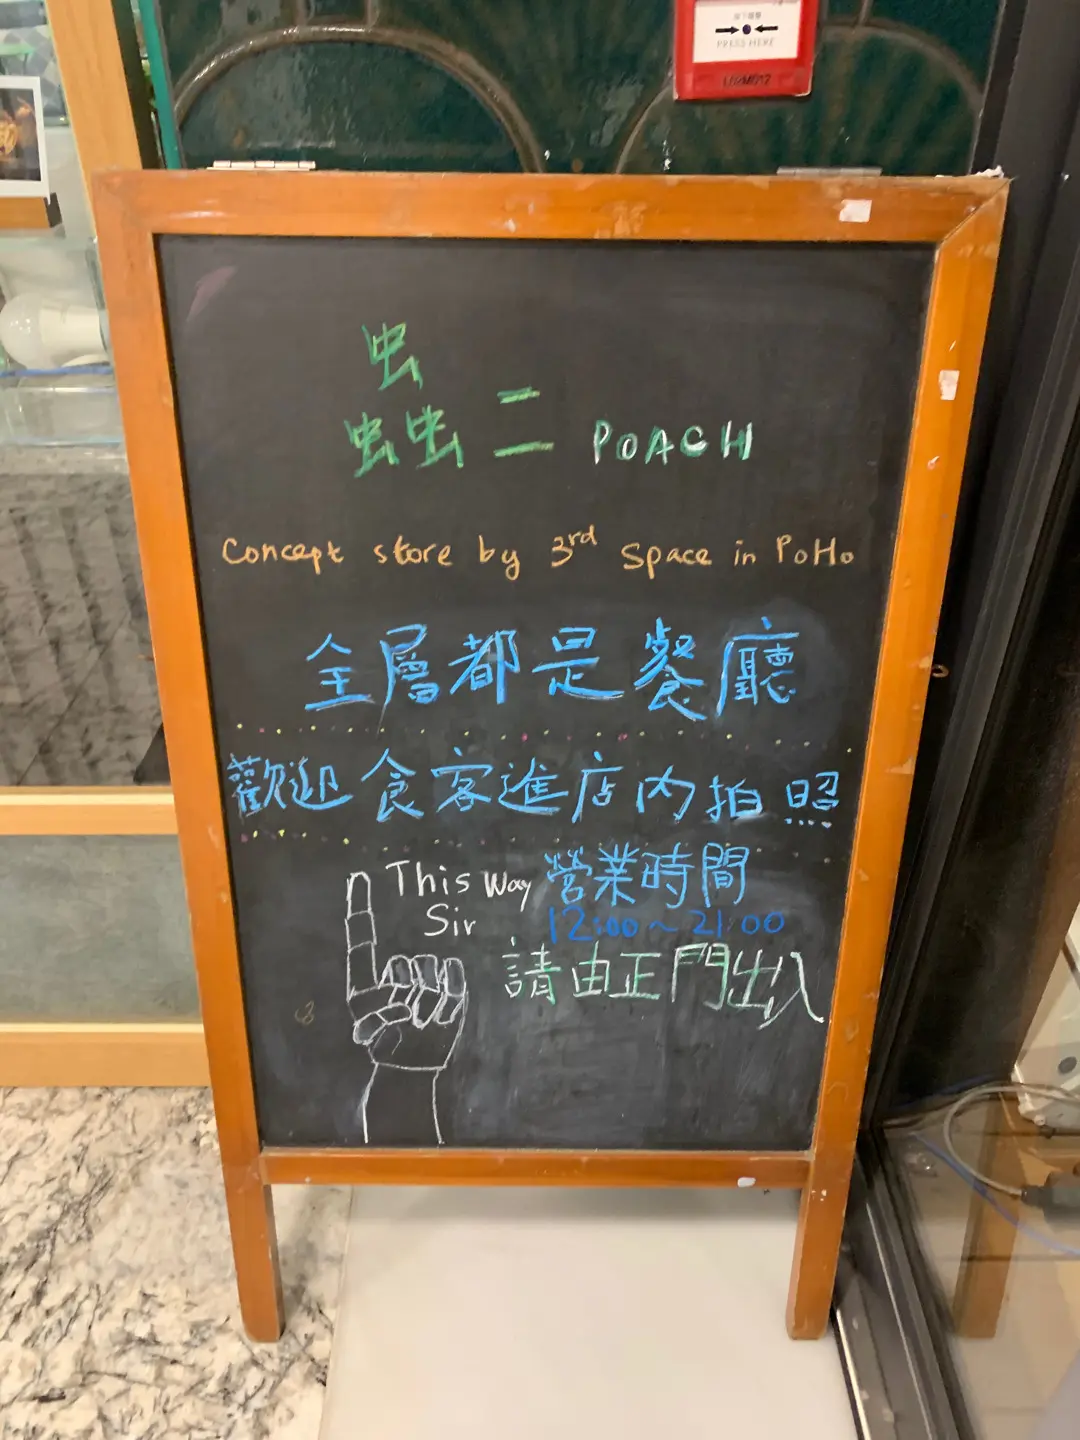 按下報警
PRESS HERE
蟲二 POACH
Concept store by 3rd Space in PoHo
全層都是餐廳
歡迎食客進店內拍照
This Way Sir
營業時間
12:00~21:00
請由正門出入